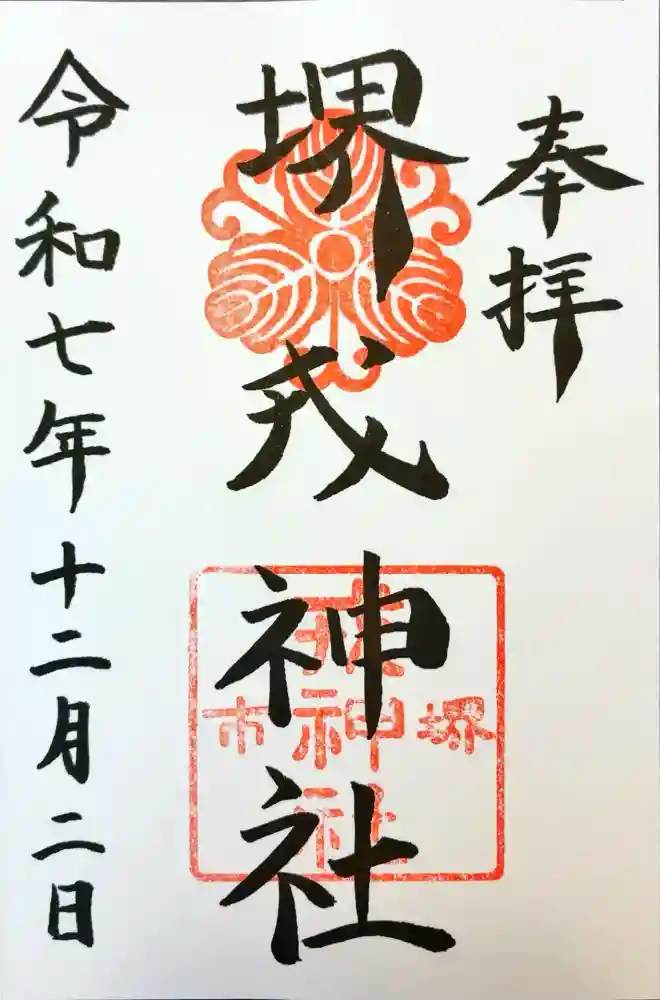 奉拝
堺戎神社
堺
戎神社
市
令和七年十二月二日